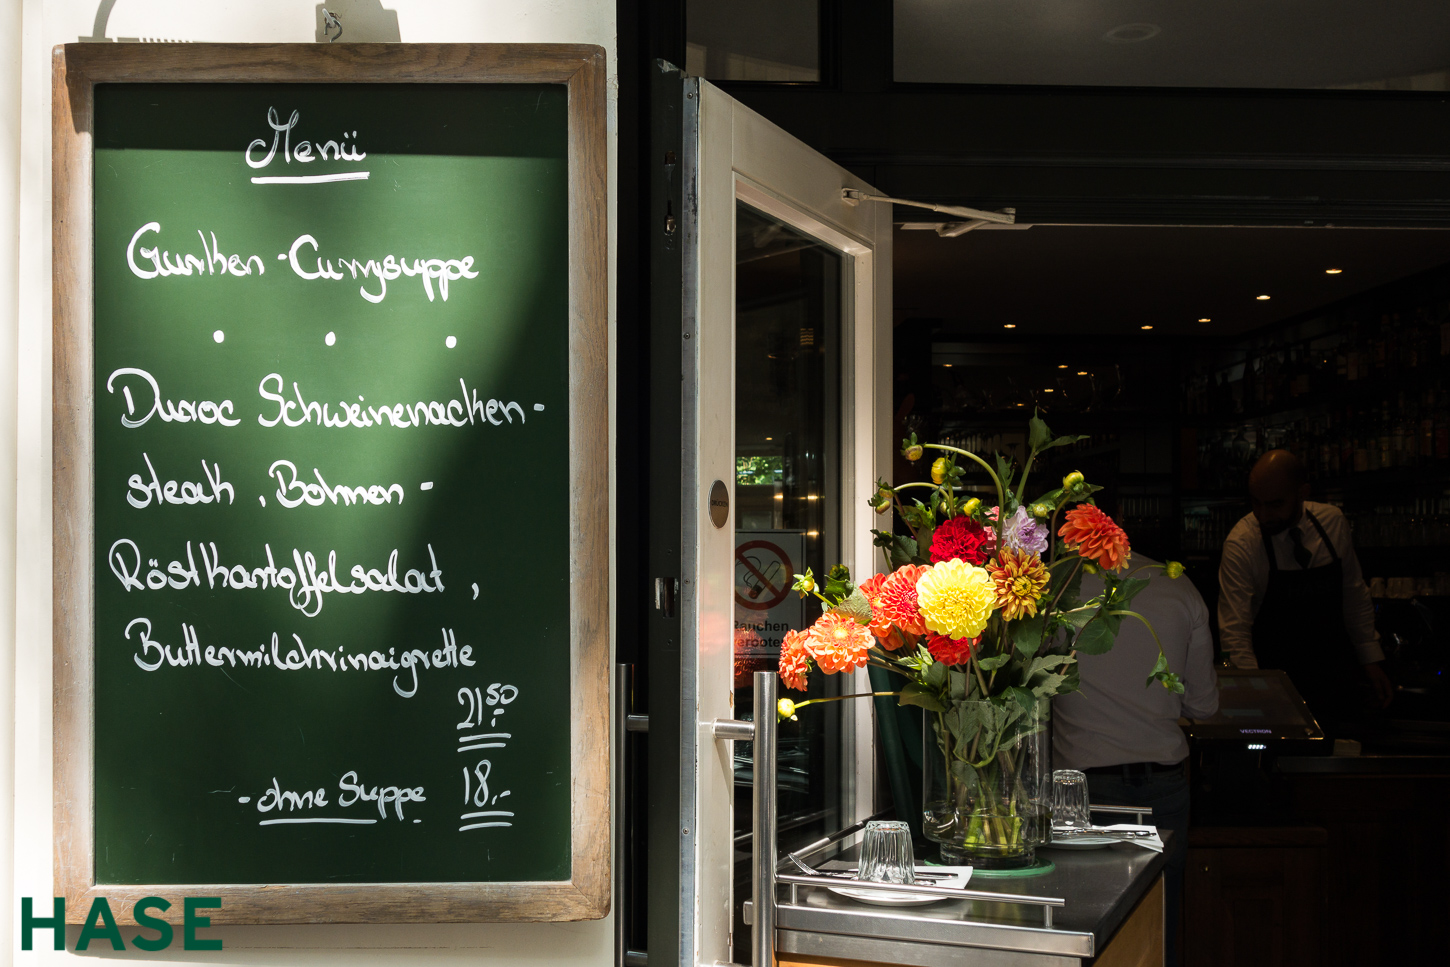 Menü
Gurken-Currysuppe
. . .
Duroc Schweinenacken-
steak, Bohnen-
Röstkartoffelsalat,
Buttermilchvinaigrette
21,50
-ohne Suppe 18,-
HASE
Rauchen
VECTRON